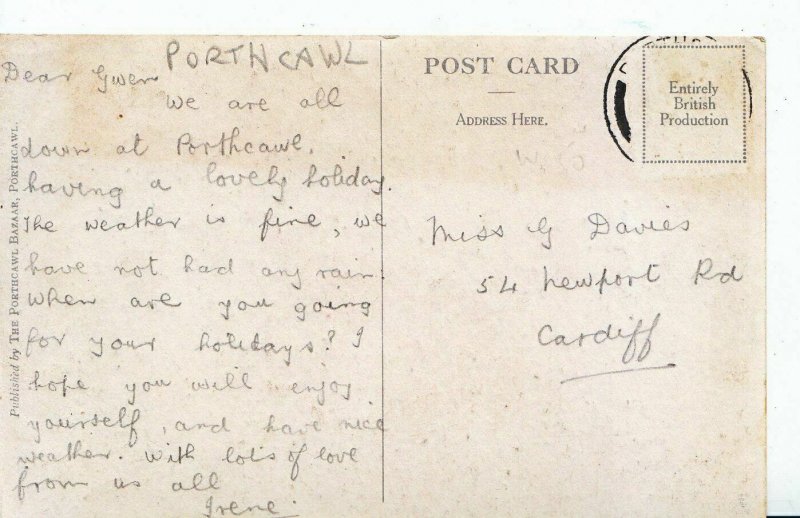 PORTHCAWL
Dear Gwen
We are all
down at Porthcawl,
having a lovely holiday.
The weather is fine, we
have not had any rain.
When are you going
for your holidays? I
hope you will enjoy
yourself, and have nice
weather. With lots of love
from us all
Irene.
Published by THE PORTHCAWL BAZAAR, PORTHCAWL.
POST CARD
ADDRESS HERE.
Entirely
British
Production
Miss G Davies
54 Newport Rd
Cardiff